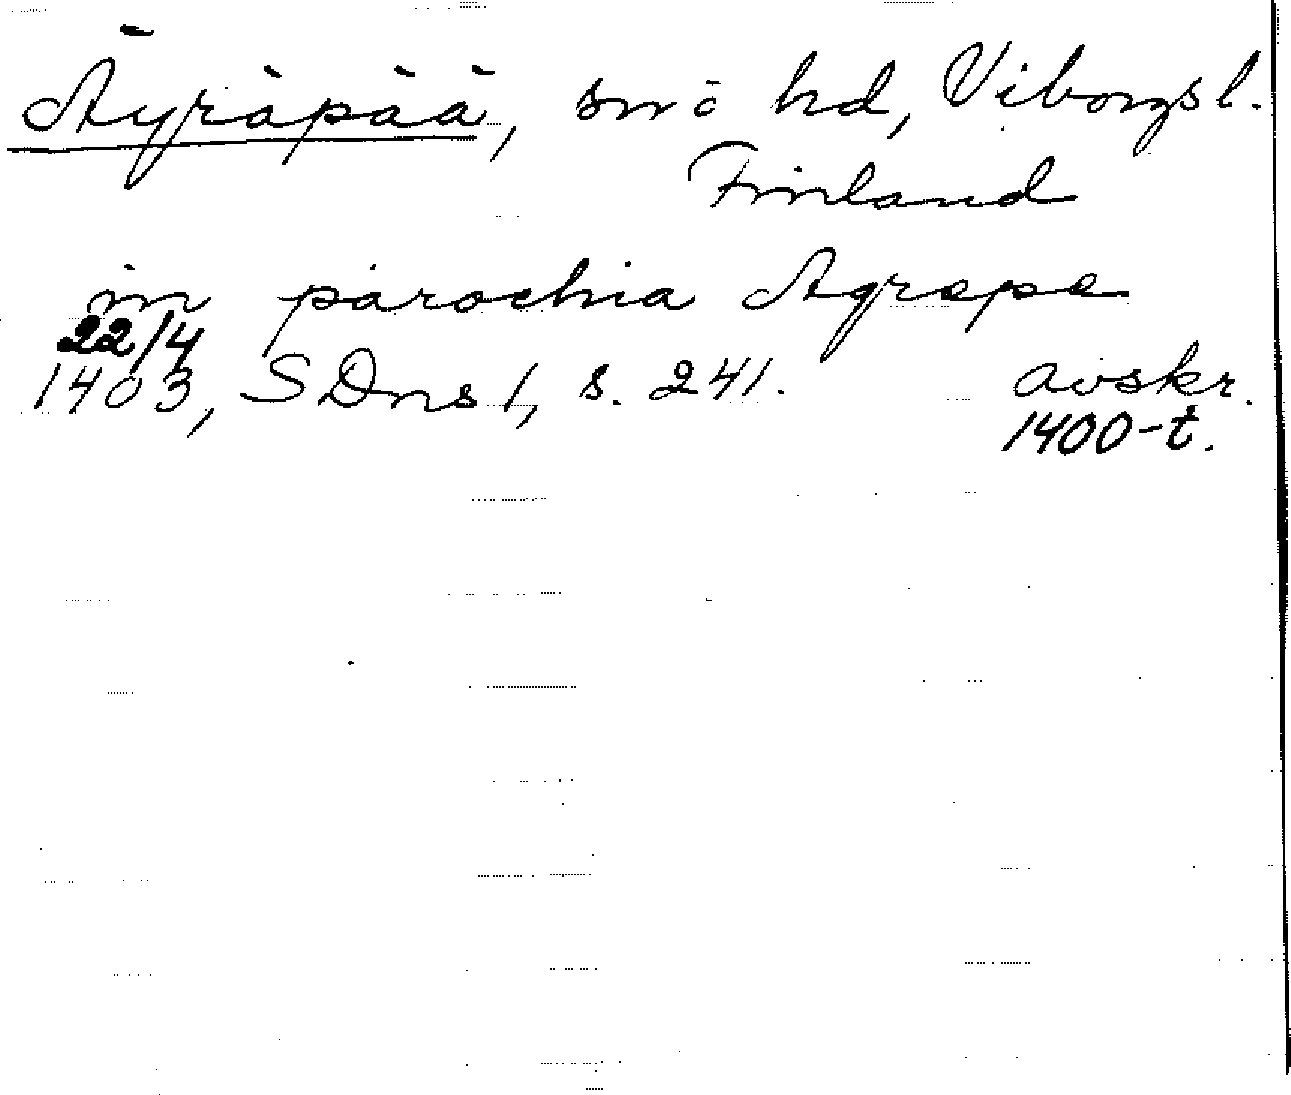 Äyräpää, sn o hd, Viborgs l.
Finland
in parochia Agrapa
22/4
1403, SDns 1, s. 241. avskr.
1400-t.